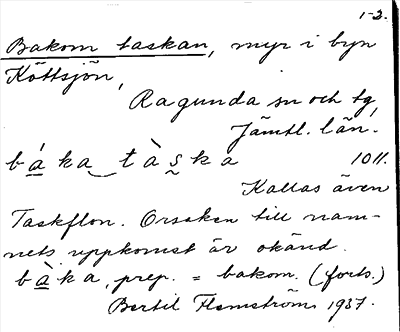 1-2.
Bakom taskan, myr i byn
Köttsjön,
Ragunda sn och tg,
Jämtl. län.
bá̱ka‿tà̱s̰ka 1011.
Kallas även
Taskflon. Orsaken till nam-
nets uppkomst är okänd.
bà̱ka, prep. = bakom. (forts.)
Bertil Flemström 1937.